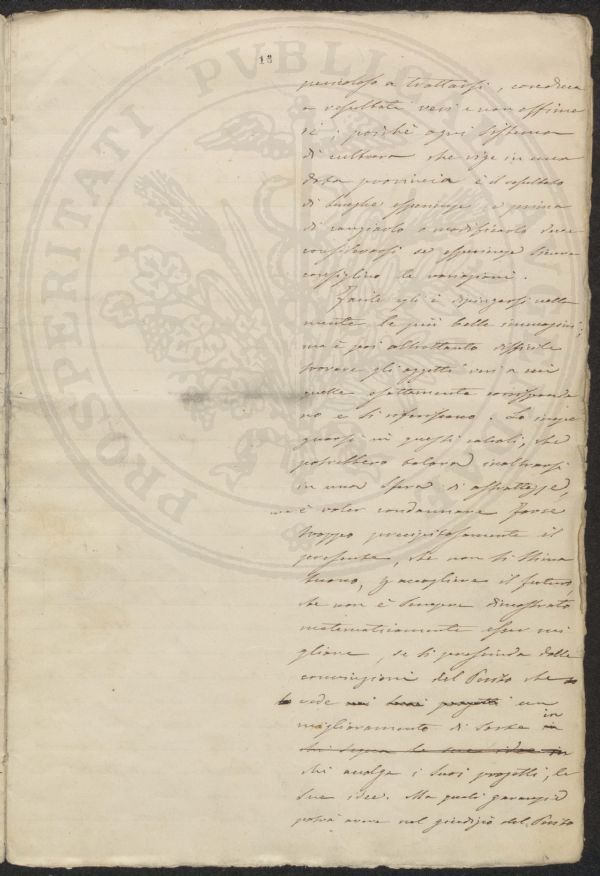 18
pericoloso a trattarsi, conduca
a resultati veri e non effime
ri; poichè ogni sistema
di cultura che vige in una
data provincia è il resultato
di lunghe esperienze e prima
di cangiarlo o modificarlo deve
considerarsi se esperienze
consiglino le variazioni.
Facile gli è dipingersi nella
mente le più belle immagini;
ma è poi altrettanto difficile
trovare gli oggetti veri a cui
quelle esattamente corrisponda
no e si riferiscano. Lo inge
in questi calcoli, che
potrebbero talora inoltrarsi
in una sfera di astrattezze,
è voler condannare forse
troppo precipitosamente il
presente, che non si stima
buono, accogliere il futuro,
che non è sempre dimostrato
matematicamente esser mi
gliore, se si prescinda dalle
convinzioni del che
vede nei suoi progetti un
miglioramento di sorte in
chi segua le sue idee in
chi accolga i suoi progetti, le
sue idee. Ma quali garanzie
potrà avere nel giudizio del
PROSPERITATI PVBLICAE AVGENDAE